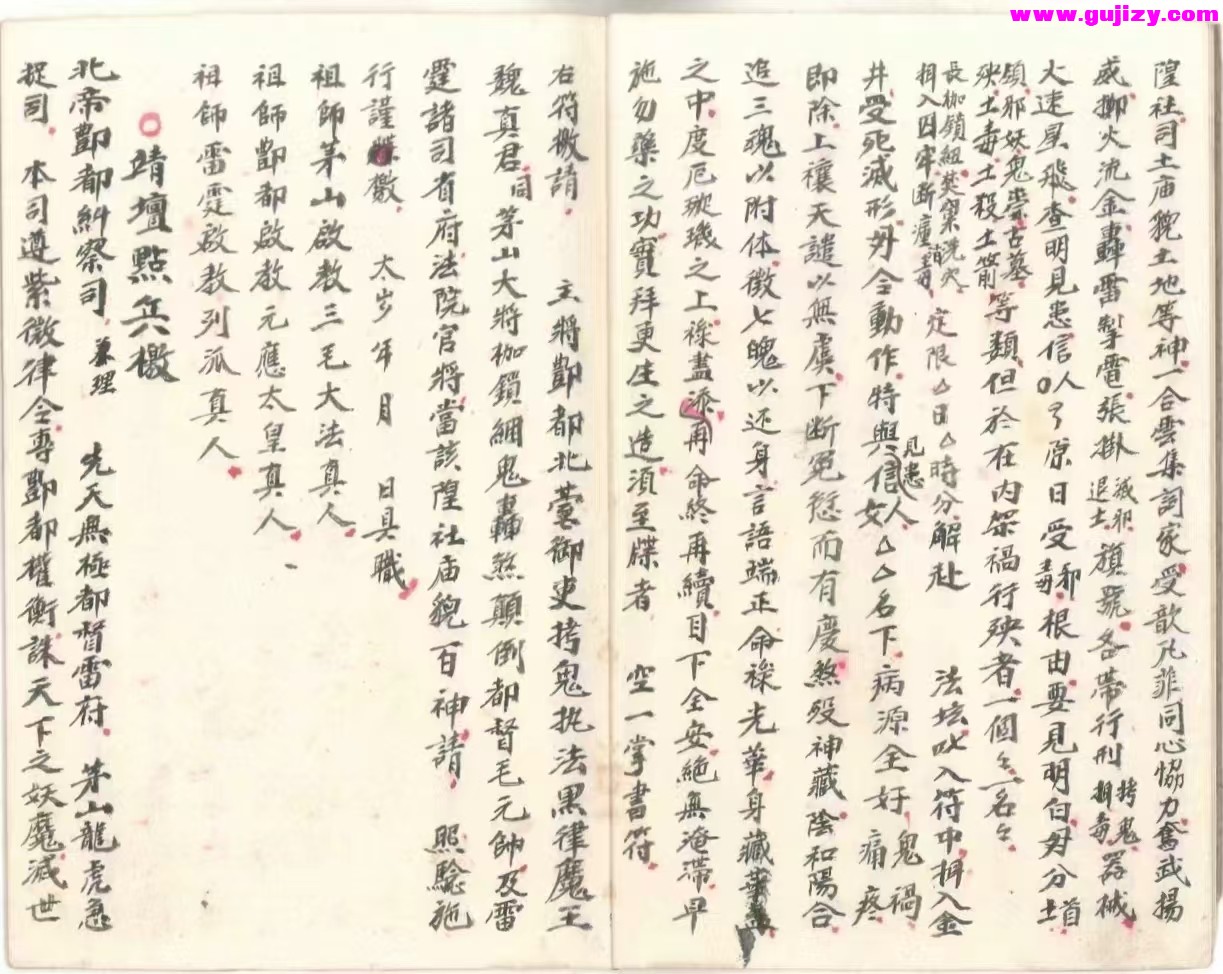 www.gujizy.com
隍社司土庙貌土地等神一合雲集詞家受歆凡菲同心恊力奮武揚
威擲火流金轟雷掣電張掛 滅邪退土 旗號各帶行刑 拷鬼 毒 器械
火速星飛查明見患信人〇了原日受 邪毒 根由要見明白毋分 土首
領邪妖鬼祟古墓
殃土毒土殺土箭 等類但於在内架禍行殃者一個々一名々
長枷鎖紐
入囚牢断瘟 定限△日△時分解赴 法坛 入符中 入金
井受死滅形毋令動作特與 見患 信人女△△名下病源全好 鬼禍痛疼
即除上禳天譴以無虞下断冤愆而有慶煞殁神藏陰和陽合
追三魂以附体徵七魄以还身言語端正命祿光華身藏
之中度厄璇璣之上祿盡添再命終再續目下全安絶無淹滯早
施勿藥之功實拜更生之造須至牒者 空一掌書符
右符檄請 主將酆都北臺御史拷鬼执法黑律魔王
魏真君 同 茅山大將枷鎖綑鬼轟煞顛倒都督毛元帥及雷
霆諸司省府法院官將當該隍社庙貌百神請 照驗施
行謹檄 太岁年月 日具職
祖師茅山啟教三毛大法真人
祖師酆都啟教元應太皇真人
祖師雷霆啟教列派真人
〇靖壇點兵檄
北帝酆都糾察司 兼理 先天無極都督雷府 茅山龍虎急
捉司 本司遵紫微律令專酆都權衡誅天下之妖魔滅世